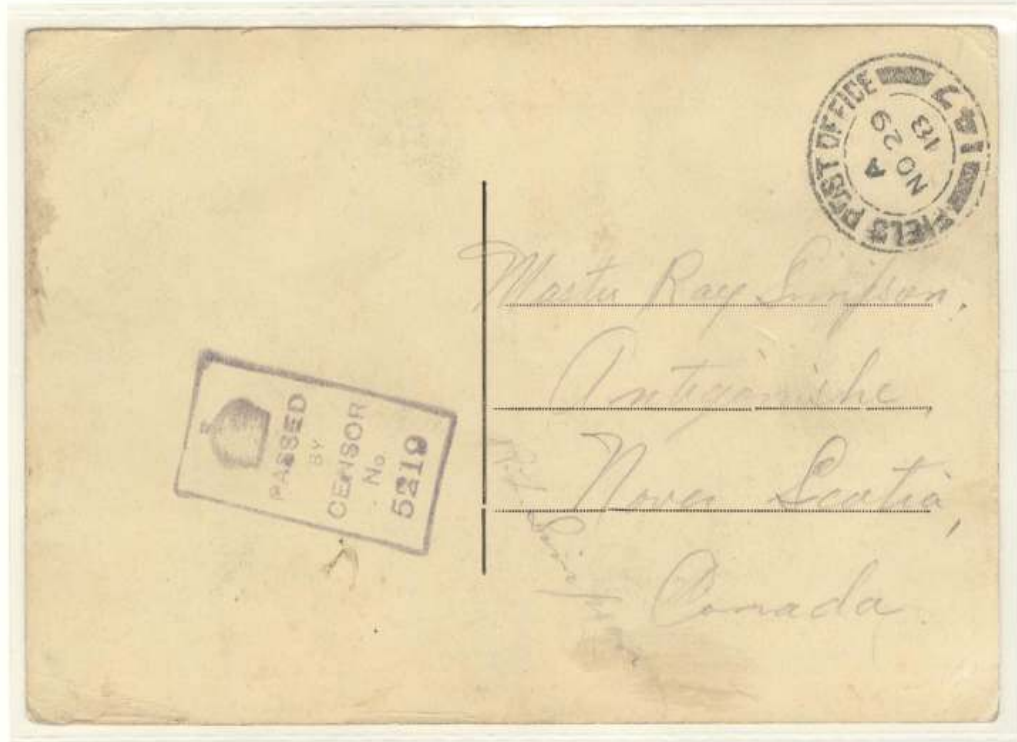 FIELD POST OFFICE
A
NO 29
18
PASSED
BY
CENSOR
No.
5219
Master Ray Simpson,
Antigonishe,
Nova Scotia,
Canada.